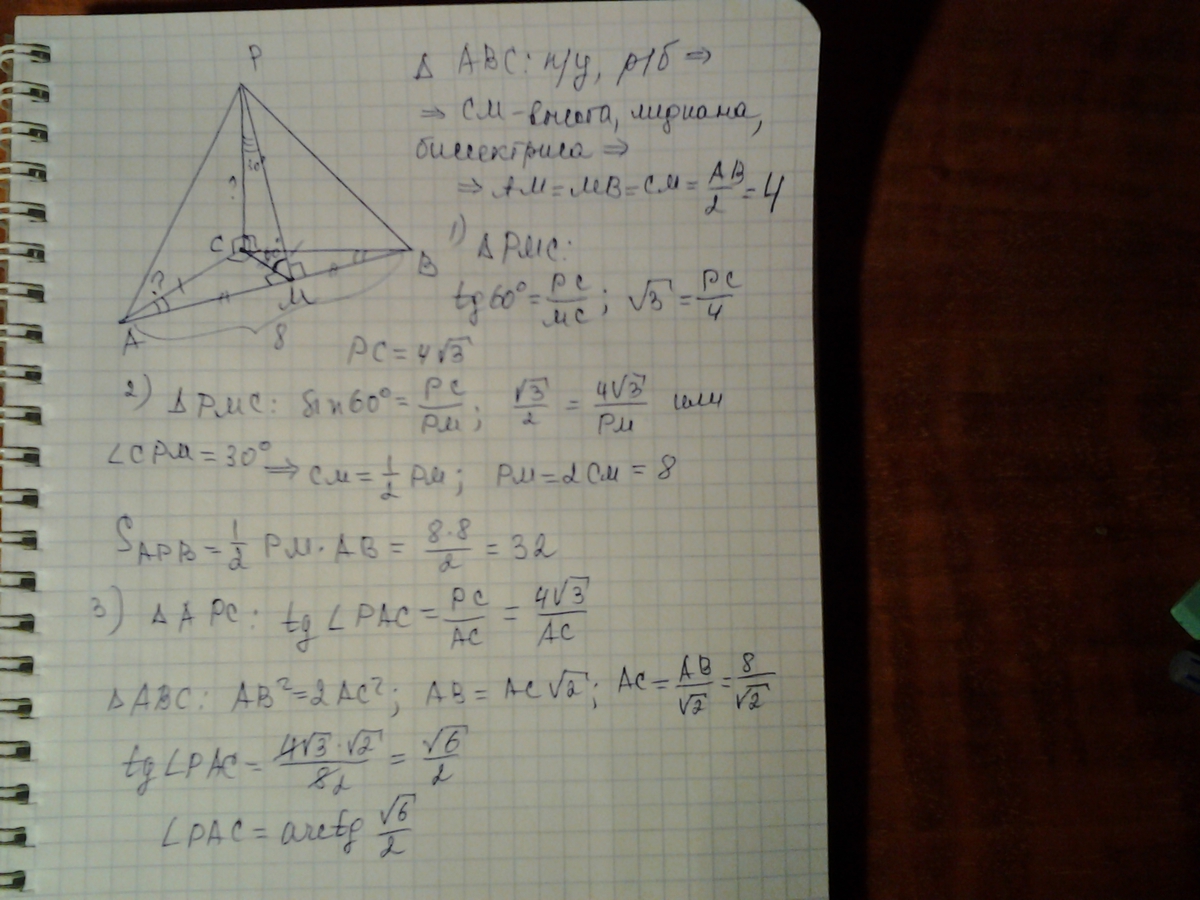 P
Δ ABC: п/у, р/б ⇒
⇒ CM - высота, медиана,
биссектриса ⇒
⇒ AM = MB = CM = AB/2 = 4
30°
?
C
60°
B
?
M
A
8
1) Δ PMC:
tg 60° = PC/MC; √3 = PC/4
PC = 4√3
2) Δ PMC: sin 60° = PC/PM; √3/2 = 4√3/PM или
∠CPM = 30° ⇒ CM = 1/2 PM; PM = 2CM = 8
S APB = 1/2 PM · AB = 8·8/2 = 32
3) Δ APC: tg ∠PAC = PC/AC = 4√3/AC
Δ ABC: AB² = 2AC²; AB = AC√2; AC = AB/√2 = 8/√2
tg ∠PAC = 4√3·√2/8 2 = √6/2
∠PAC = arctg √6/2